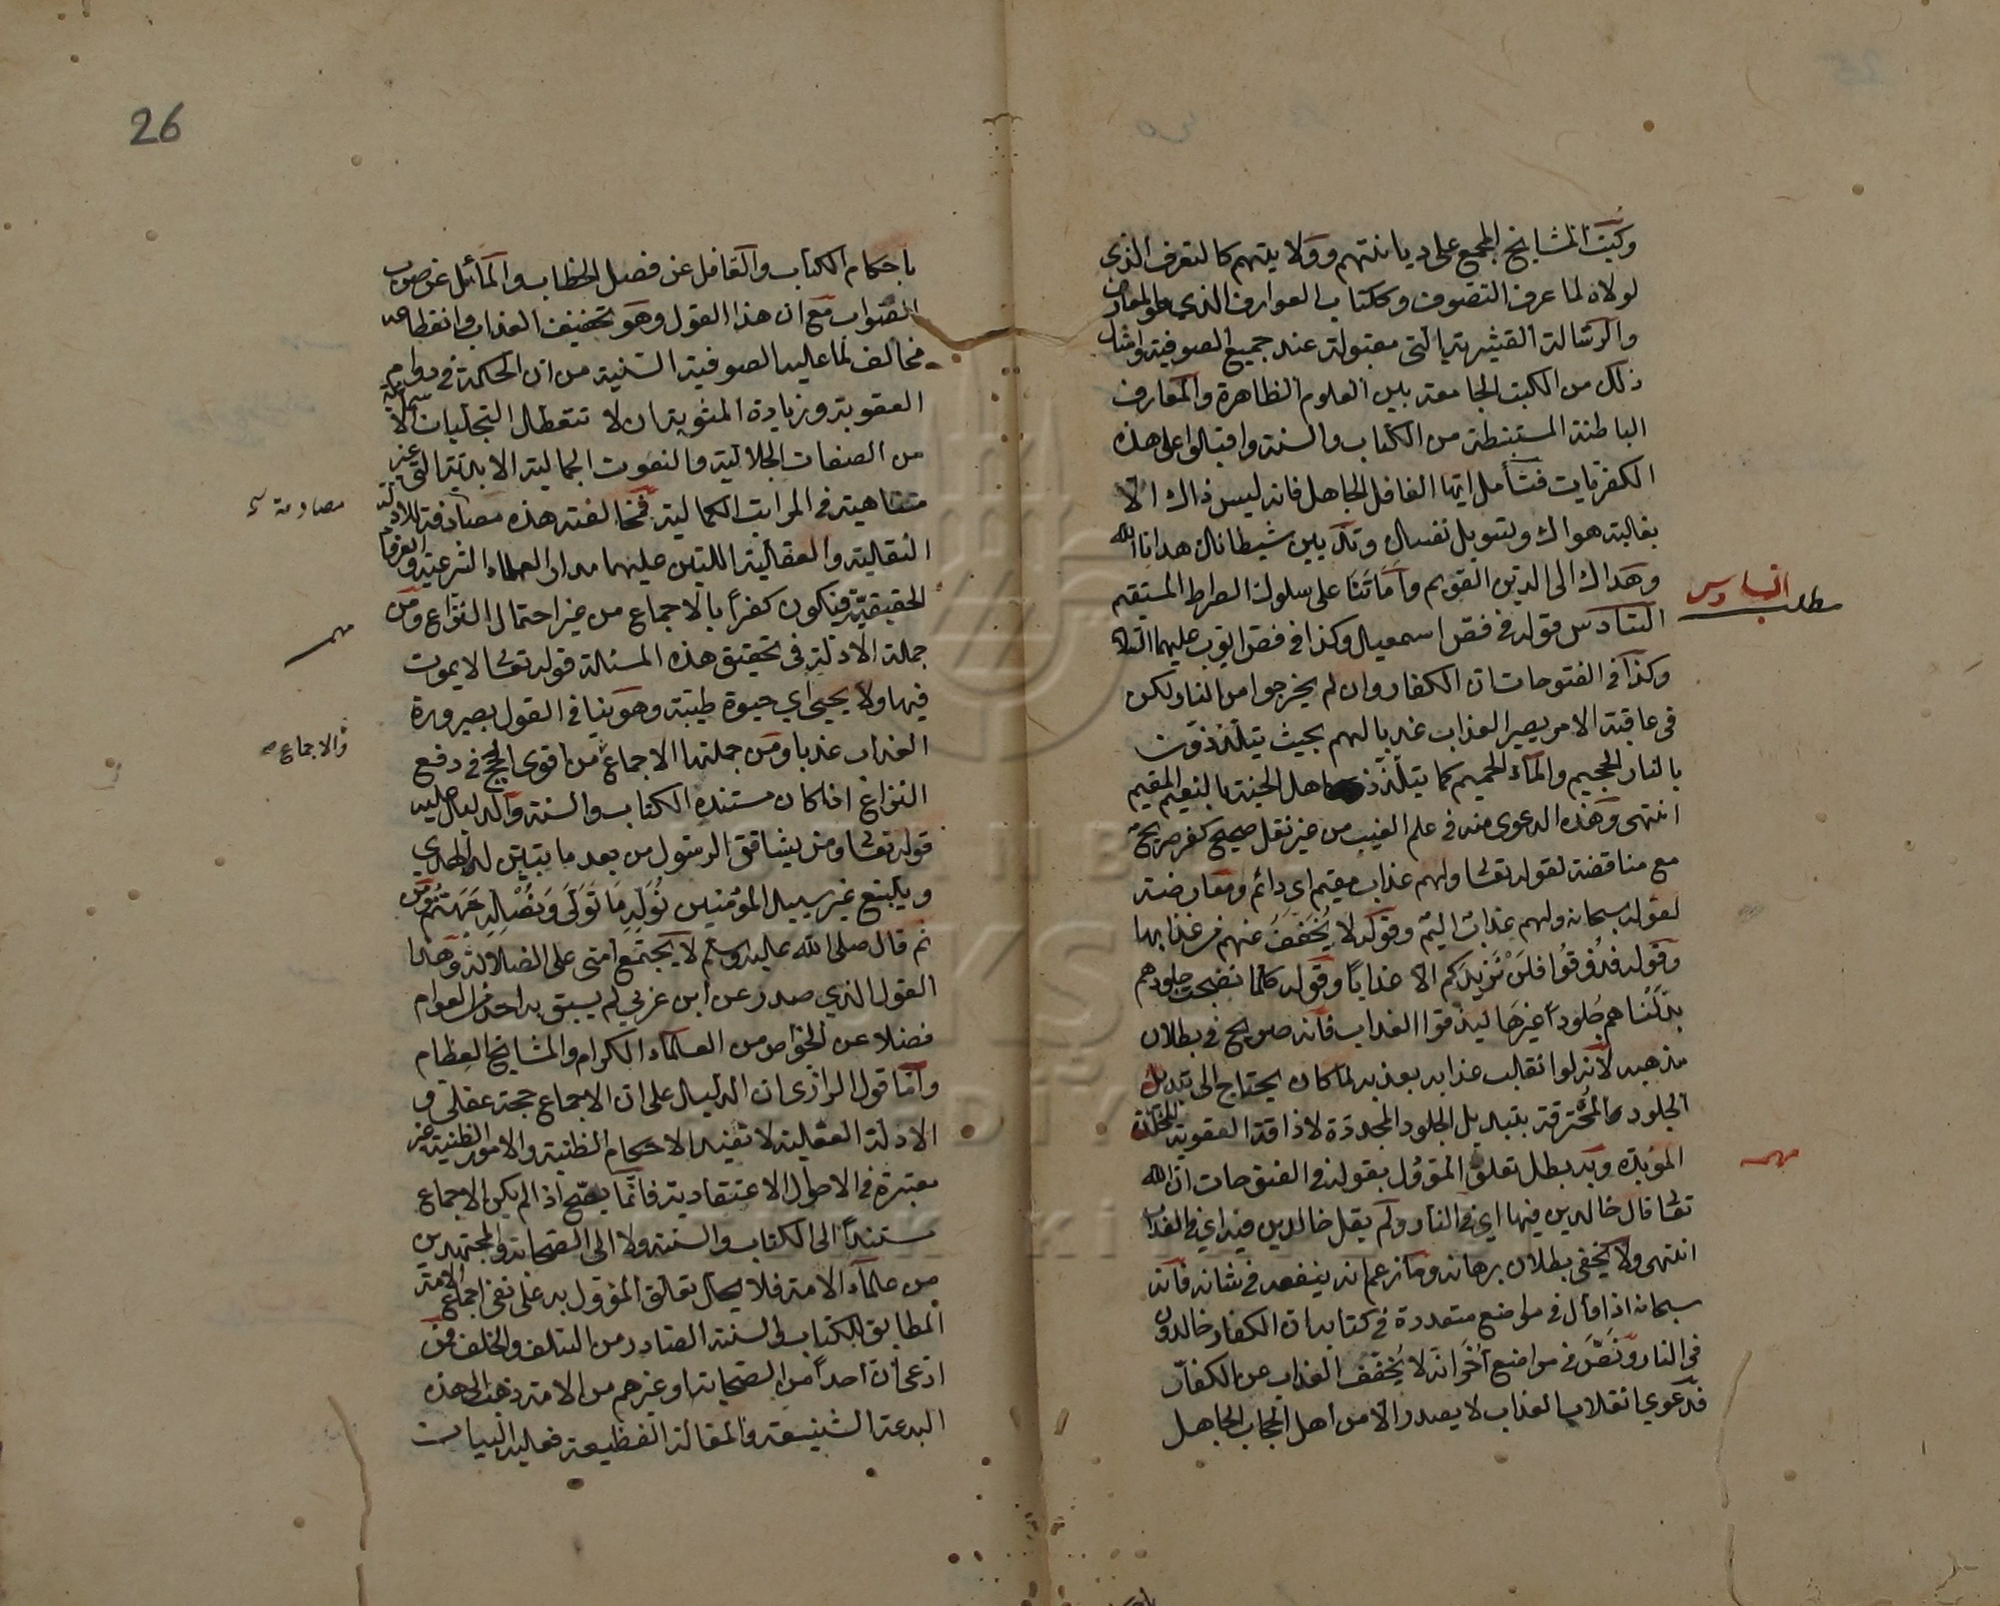 وكتب المشايخ المجمع على ديانتهم وولايتهم كالتعرف الذي
لولاه لما عرف التصوف وككتاب العوارف الذي هو المعارف
والرسالة القشيرية التي مقبولة عند جميع الصوفية وامثال
ذلك من الكتب الجامعة بين العلوم الظاهرة والمعارف
الباطنة المستنبطة من الكتاب والسنة واقبالوا على هذه
الكفريات فتأمل ايها الغافل الجاهل فانه ليس ذاك الا
بغالبة هواك وتسويل نفسك وتلبيس شيطانك هدانا الله
وهداك الى الدين القويم واماتنا على سلوك الصراط المستقيم
مطلب السادس
السادس قوله في فص اسمعيل وكذا في فص ايوب عليهما السلام
وكذا في الفتوحات ان الكفار وان لم يخرجوا من النار ولكن
في عاقبة الامر يصير العذاب عذبا لهم بحيث يتلذذون
بالنار الجحيم والماء الحميم كما يتلذذ اهل الجنة بالنعيم المقيم
انتهى وهذه الدعوى منه في علم الغيب من غير نقل صحيح كفر صريح
مع مناقضة لقوله تعالى ولهم عذاب مقيم اي دائم ومعارضة
لقوله سبحانه ولهم عذاب اليم وقوله لا يخفف عنهم من عذابها
وقوله فذوقوا فلن نزيدكم الا عذابا وقوله كلما نضجت جلودهم
بدلناهم جلودا غيرها ليذوقوا العذاب فانه صريح في بطلان
مذهبه لانه لو انقلب عذابه بعذبه لما كان يحتاج الى تبديل
الجلود المحترقة بتبديل الجلود المجددة لاذاقة العقوبة المخلدة
مهم
المؤبدة وبه بطل تعلق المؤول بقوله في الفتوحات ان الله
تعالى قال خالدين فيها اي في النار ولم يقل خالدين فيه اي في العذاب
انتهى ولا يخفى بطلان برهانه وما زعم انه ينفعه في شانه فانه
سبحانه اذا قال في مواضع متعددة في كتابه ان الكفار خالدون
في النار ونص في مواضع أخر انه لا يخفف العذاب عن الكفار
فدعوي انقلاب العذاب لا يصدر الا من اهل الحجاب الجاهل
26
باحكام الكتاب والغافل عن فصل الخطاب والمائل عن صوب
الصواب مع ان هذا القول وهو تخفيف العذاب وانقطاعه
مخالف لما عليه الصوفية السنية من ان الحكمة في دوام
العقوبة وزيادة المثوبة ان لا تتعطل التجليات الاسمائية
من الصفات الجلالية والنعوت الجمالية الابدية التي غير
متناهية في المراتب الكمالية فمخالفته هذه مصادفة للادلة
مصادمة
النقلية والعقلية اللتين عليهما مدار العلماء الشرعية والعرفاء
الحقيقية فيكون كفرا بالاجماع من غير احتمال النزاع ومن
مهم
جملة الادلة في تحقيق هذه المسئلة قوله تعالى لا يموت
فيها ولا يحيى اي حيوة طيبة وهو ينافي القول بصيرورة
العذاب عذبا ومن جملتها الاجماع من اقوى الحجج في دفع
والاجماع
النزاع اذا كان مستنده الكتاب والسنة والدليل عليه
قوله تعالى ومن يشاقق الرسول من بعد ما يتبين له الهدي
ويتبع غير سبيل المؤمنين نوله ما تولى ونصله جهنم ومن
ثم قال صلى الله عليه وسلم لا يجتمع امتي على الضلالة وهذا
القول الذي صدر عن ابن عربي لم يسبق به احد من العوام
فضلا عن الخواص من العلماء الكرام والمشايخ العظام
واما قول الرازي ان الدليل على ان الاجماع حجة عقلي و
الادلة العقلية لا تفيد الا الاحكام الظنية والامور الظنية غير
معتبرة في الاصول الاعتقادية فانما يصح اذا لم يكن الاجماع
مستندا الى الكتاب والسنة ولا الى الصحابة والمجتهدين
من علماء الامة فلا يحل تعلق المؤول به على نفي اجماع الامة
المطابق بالكتاب والسنة الصادر من السلف والخلف فمن
ادعى ان احدا من الصحابة او غيرهم من الامة ذهب الى هذه
البدعة الشنيعة والمقالة الفظيعة فعليه البيان